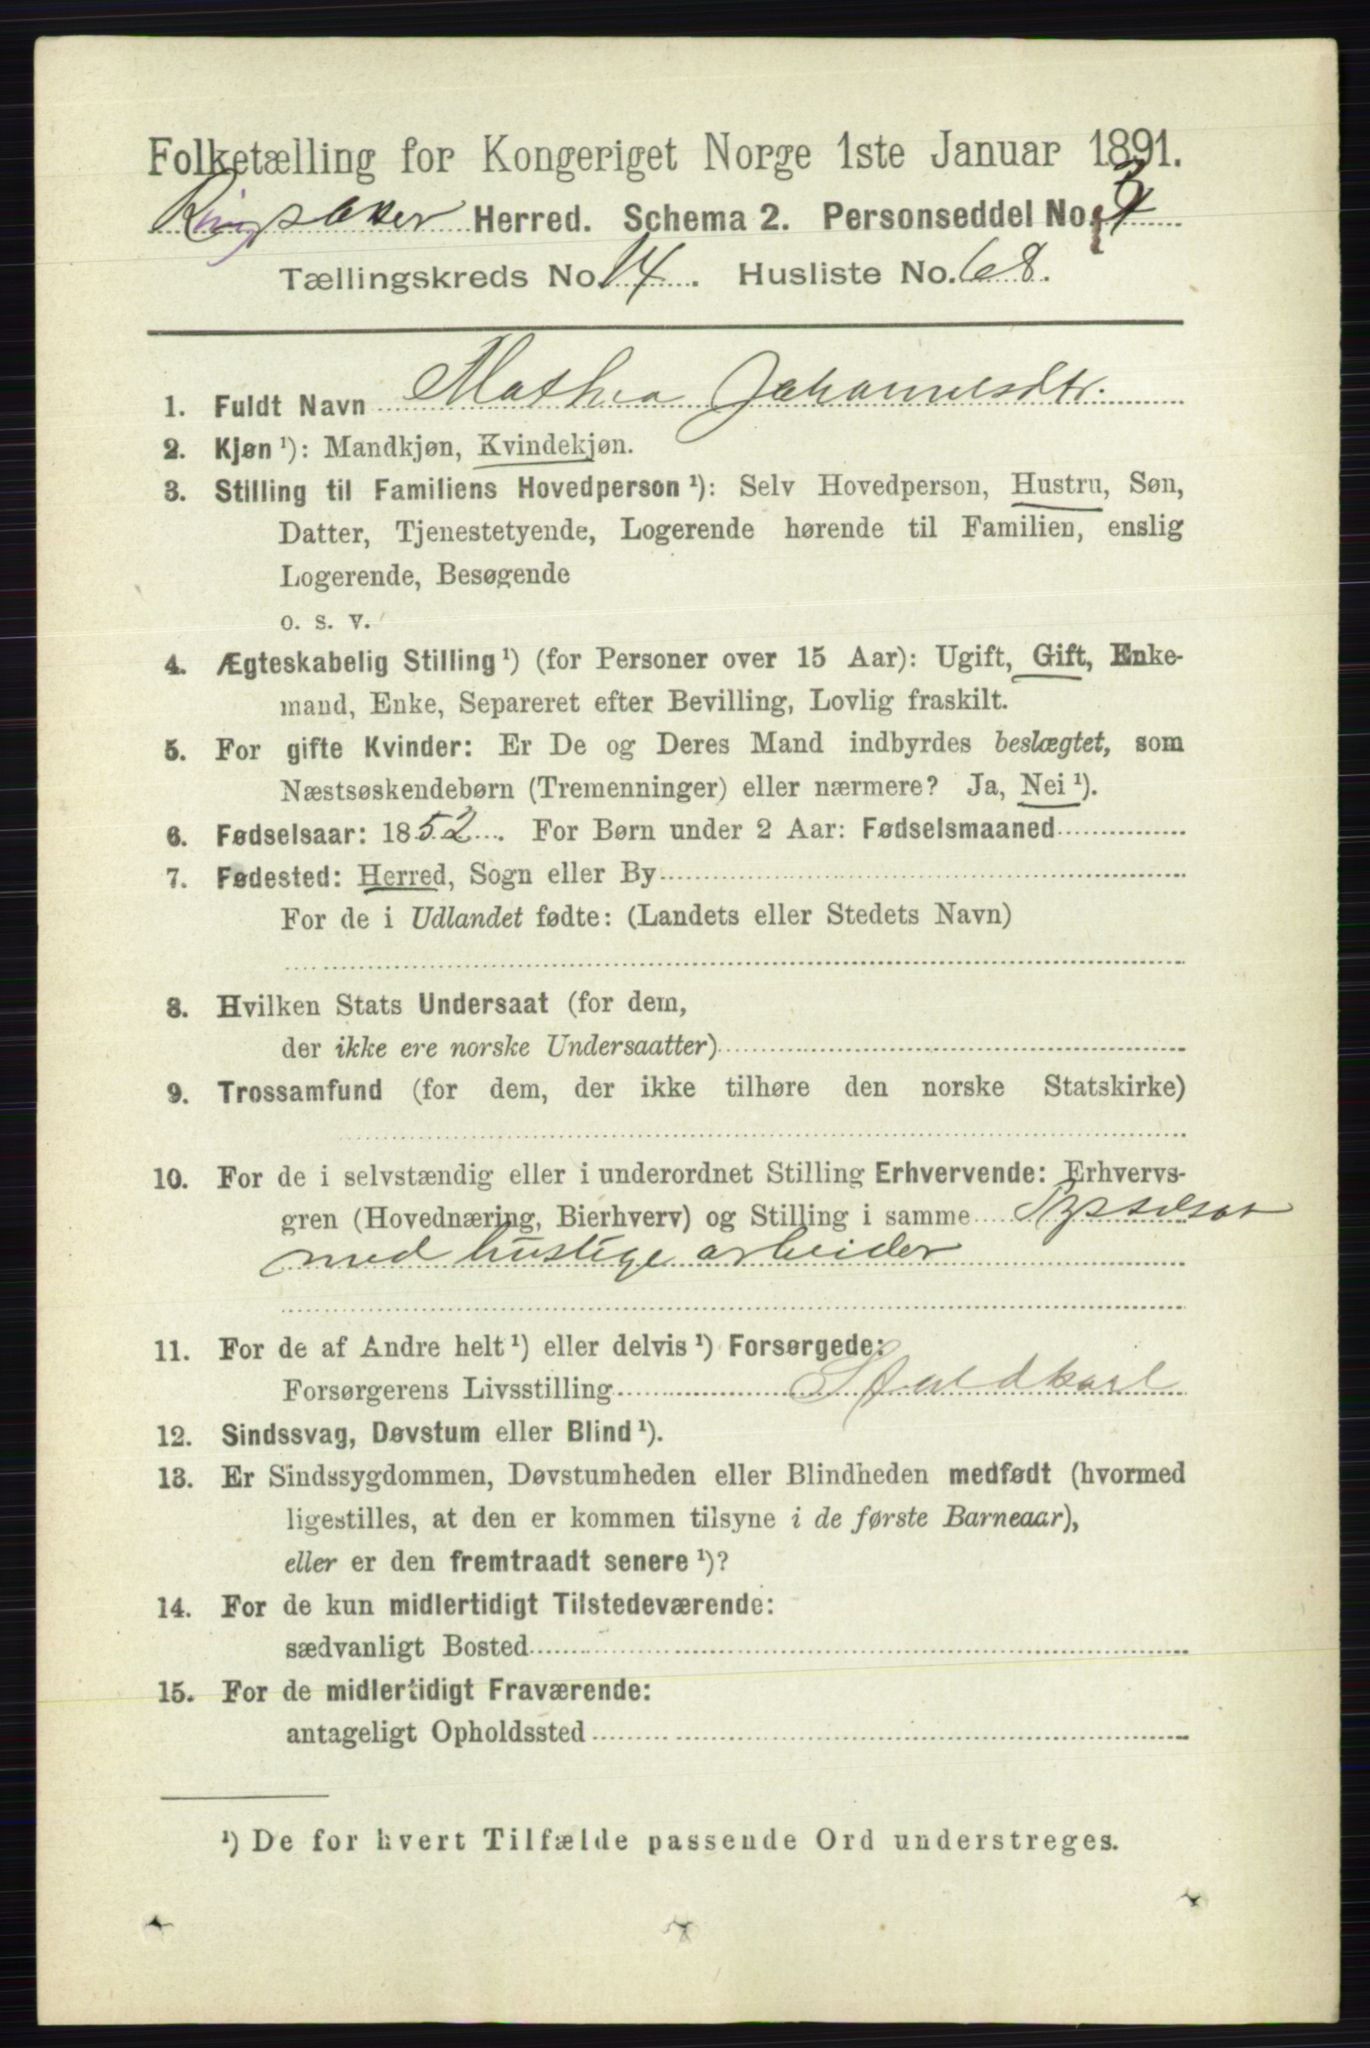 Folketælling for Kongeriget Norge 1ste Januar 1891.
Ringsaker Herred. Schema 2. Personseddel No.
Tællingskreds No. 14. Husliste No. 68.
1. Fuldt Navn Mathea Johannesdtr.
2. Kjøn ¹): Mandkjøn, Kvindekjøn.
3. Stilling til Familiens Hovedperson ¹): Selv Hovedperson, Hustru, Søn,
Datter, Tjenestetyende, Logerende hørende til Familien, enslig
Logerende, Besøgende
o. s. v.
4. Ægteskabelig Stilling ¹) (for Personer over 15 Aar): Ugift, Gift, Enke-
mand, Enke, Separeret efter Bevilling, Lovlig fraskilt.
5. For gifte Kvinder: Er De og Deres Mand indbyrdes beslægtet, som
Næstsøskendebørn (Tremenninger) eller nærmere? Ja, Nei ¹).
6. Fødselsaar: 1852. For Børn under 2 Aar: Fødselsmaaned
7. Fødested: Herred, Sogn eller By
For de i Udlandet fødte: (Landets eller Stedets Navn)
8. Hvilken Stats Undersaat (for dem,
der ikke ere norske Undersaatter)
9. Trossamfund (for dem, der ikke tilhøre den norske Statskirke)
10. For de i selvstændig eller i underordnet Stilling Erhvervende: Erhvervs-
gren (Hovednæring, Bierhverv) og Stilling i samme Sysselsat
med huslige arbeider
11. For de af Andre helt ¹) eller delvis ¹) Forsørgede:
Forsørgerens Livsstilling Staldkarl
12. Sindssvag, Døvstum eller Blind ¹).
13. Er Sindssygdommen, Døvstumheden eller Blindheden medfødt (hvormed
ligestilles, at den er kommen tilsyne i de første Barneaar),
eller er den fremtraadt senere ¹)?
14. For de kun midlertidigt Tilstedeværende:
sædvanligt Bosted
15. For de midlertidigt Fraværende:
antageligt Opholdssted
¹) De for hvert Tilfælde passende Ord understreges.